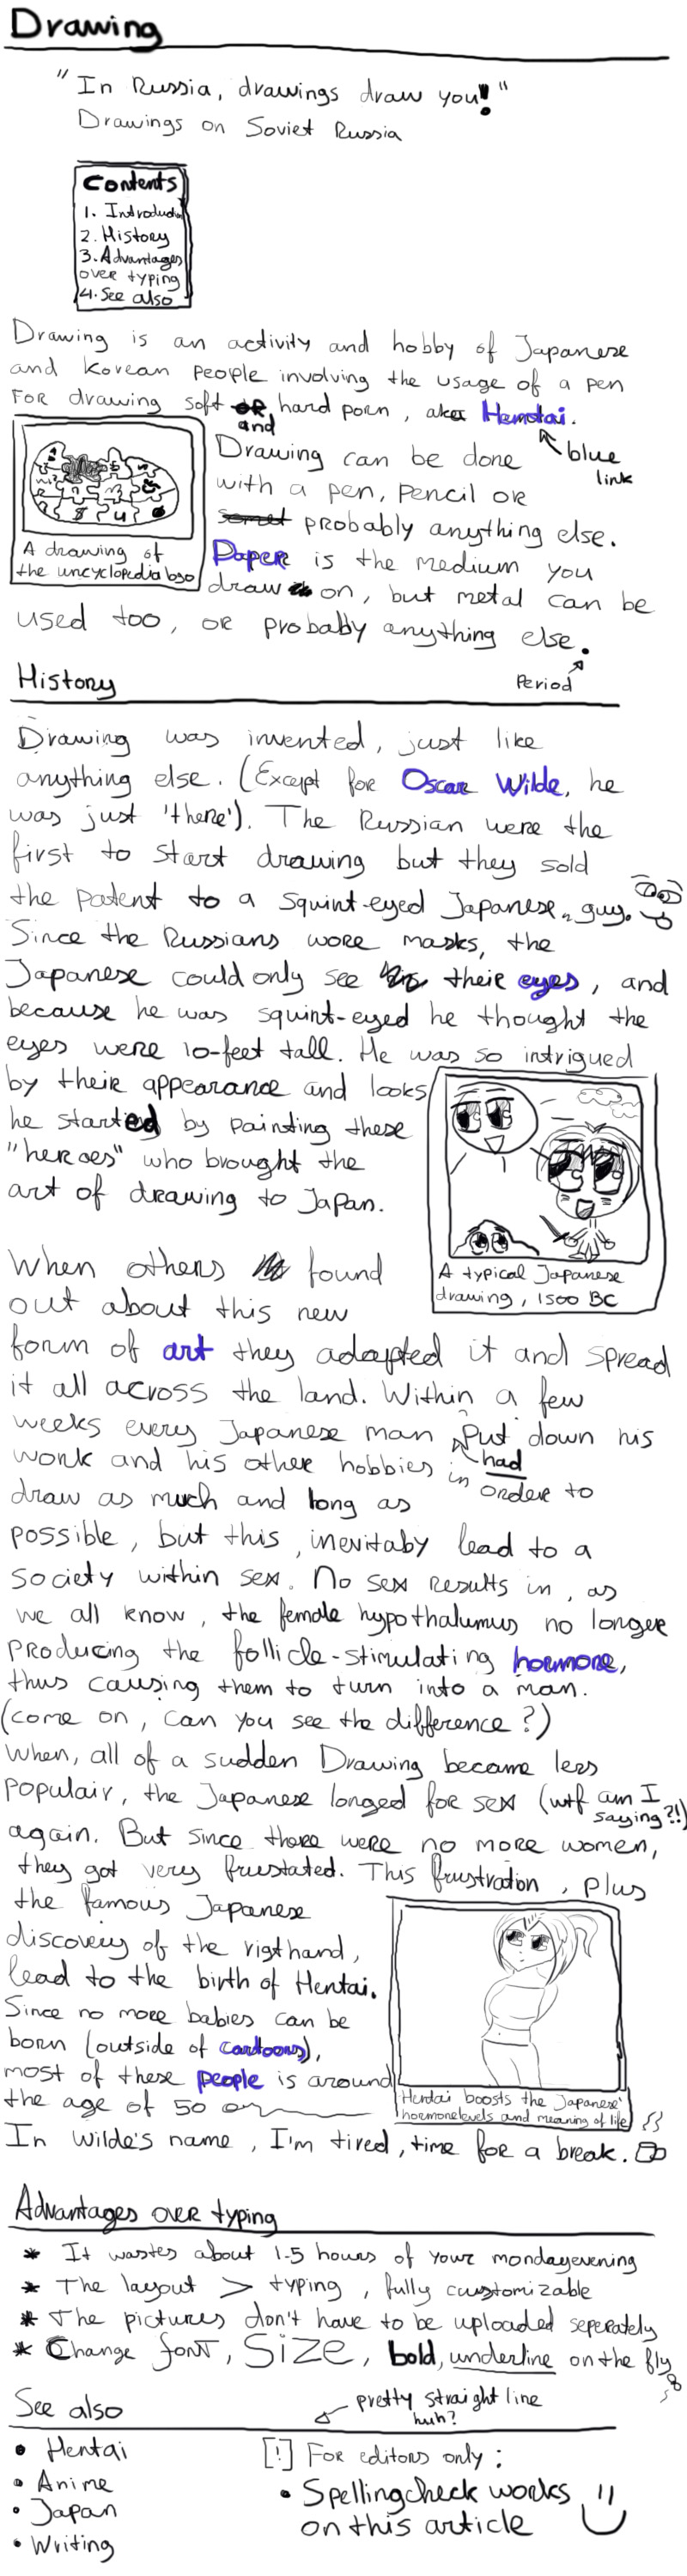 Drawing
"In Russia, drawings draw you!"
Drawings on Soviet Russia
Contents
1. Introduction
2. History
3. Advantages
over typing
4. See also
Drawing is an activity and hobby of Japanese
and Korean people involving the usage of a pen
for drawing soft and hard porn, aka Hentai.
blue
link
Drawing can be done
with a pen, pencil or
probably anything else.
Paper is the medium you
draw on, but metal can be
used too, or probably anything else.
A drawing of
the uncyclopedia logo
Period
History
Drawing was invented, just like
anything else. (Except for Oscar Wilde, he
was just 'there'). The Russian were the
first to start drawing but they sold
the patent to a squint-eyed Japanese guy.
Since the Russians wore masks, the
Japanese could only see their eyes, and
because he was squint-eyed he thought the
eyes were 10-feet tall. He was so intrigued
by their appearance and looks
he started by painting these
"heroes" who brought the
art of drawing to Japan.
A typical Japanese
drawing, 1500 BC
When others found
out about this new
form of art they adapted it and spread
it all across the land. Within a few
weeks every Japanese man put down his
had
work and his other hobbies in order to
draw as much and long as
possible, but this, inevitaby lead to a
society within sex. No sex results in, as
we all know, the female hypothalumus no longer
producing the follicle-stimulating hormone,
thus causing them to turn into a man.
(come on, can you see the difference?)
When, all of a sudden Drawing became less
populair, the Japanese longed for sex (wtf am I
saying?!)
again. But since there were no more women,
they got very frustated. This frustration, plus
the famous Japanese
discovery of the rigthand,
lead to the birth of Hentai.
Since no more babies can be
born (outside of cartoons),
most of these people is around
the age of 50 or
Hentai boosts the Japanese'
hormonelevels and meaning of life
In Wilde's name, I'm tired, time for a break.
Advantages over typing
* It wastes about 1.5 hours of your mondayevening
* The layout > typing, fully customizable
* The pictures don't have to be uploaded seperately
* Change font, size, bold, underline on the fly
See also
pretty straight line
huh?
• Hentai
• Anime
• Japan
• Writing
[!] For editors only:
• Spellingcheck works
on this article